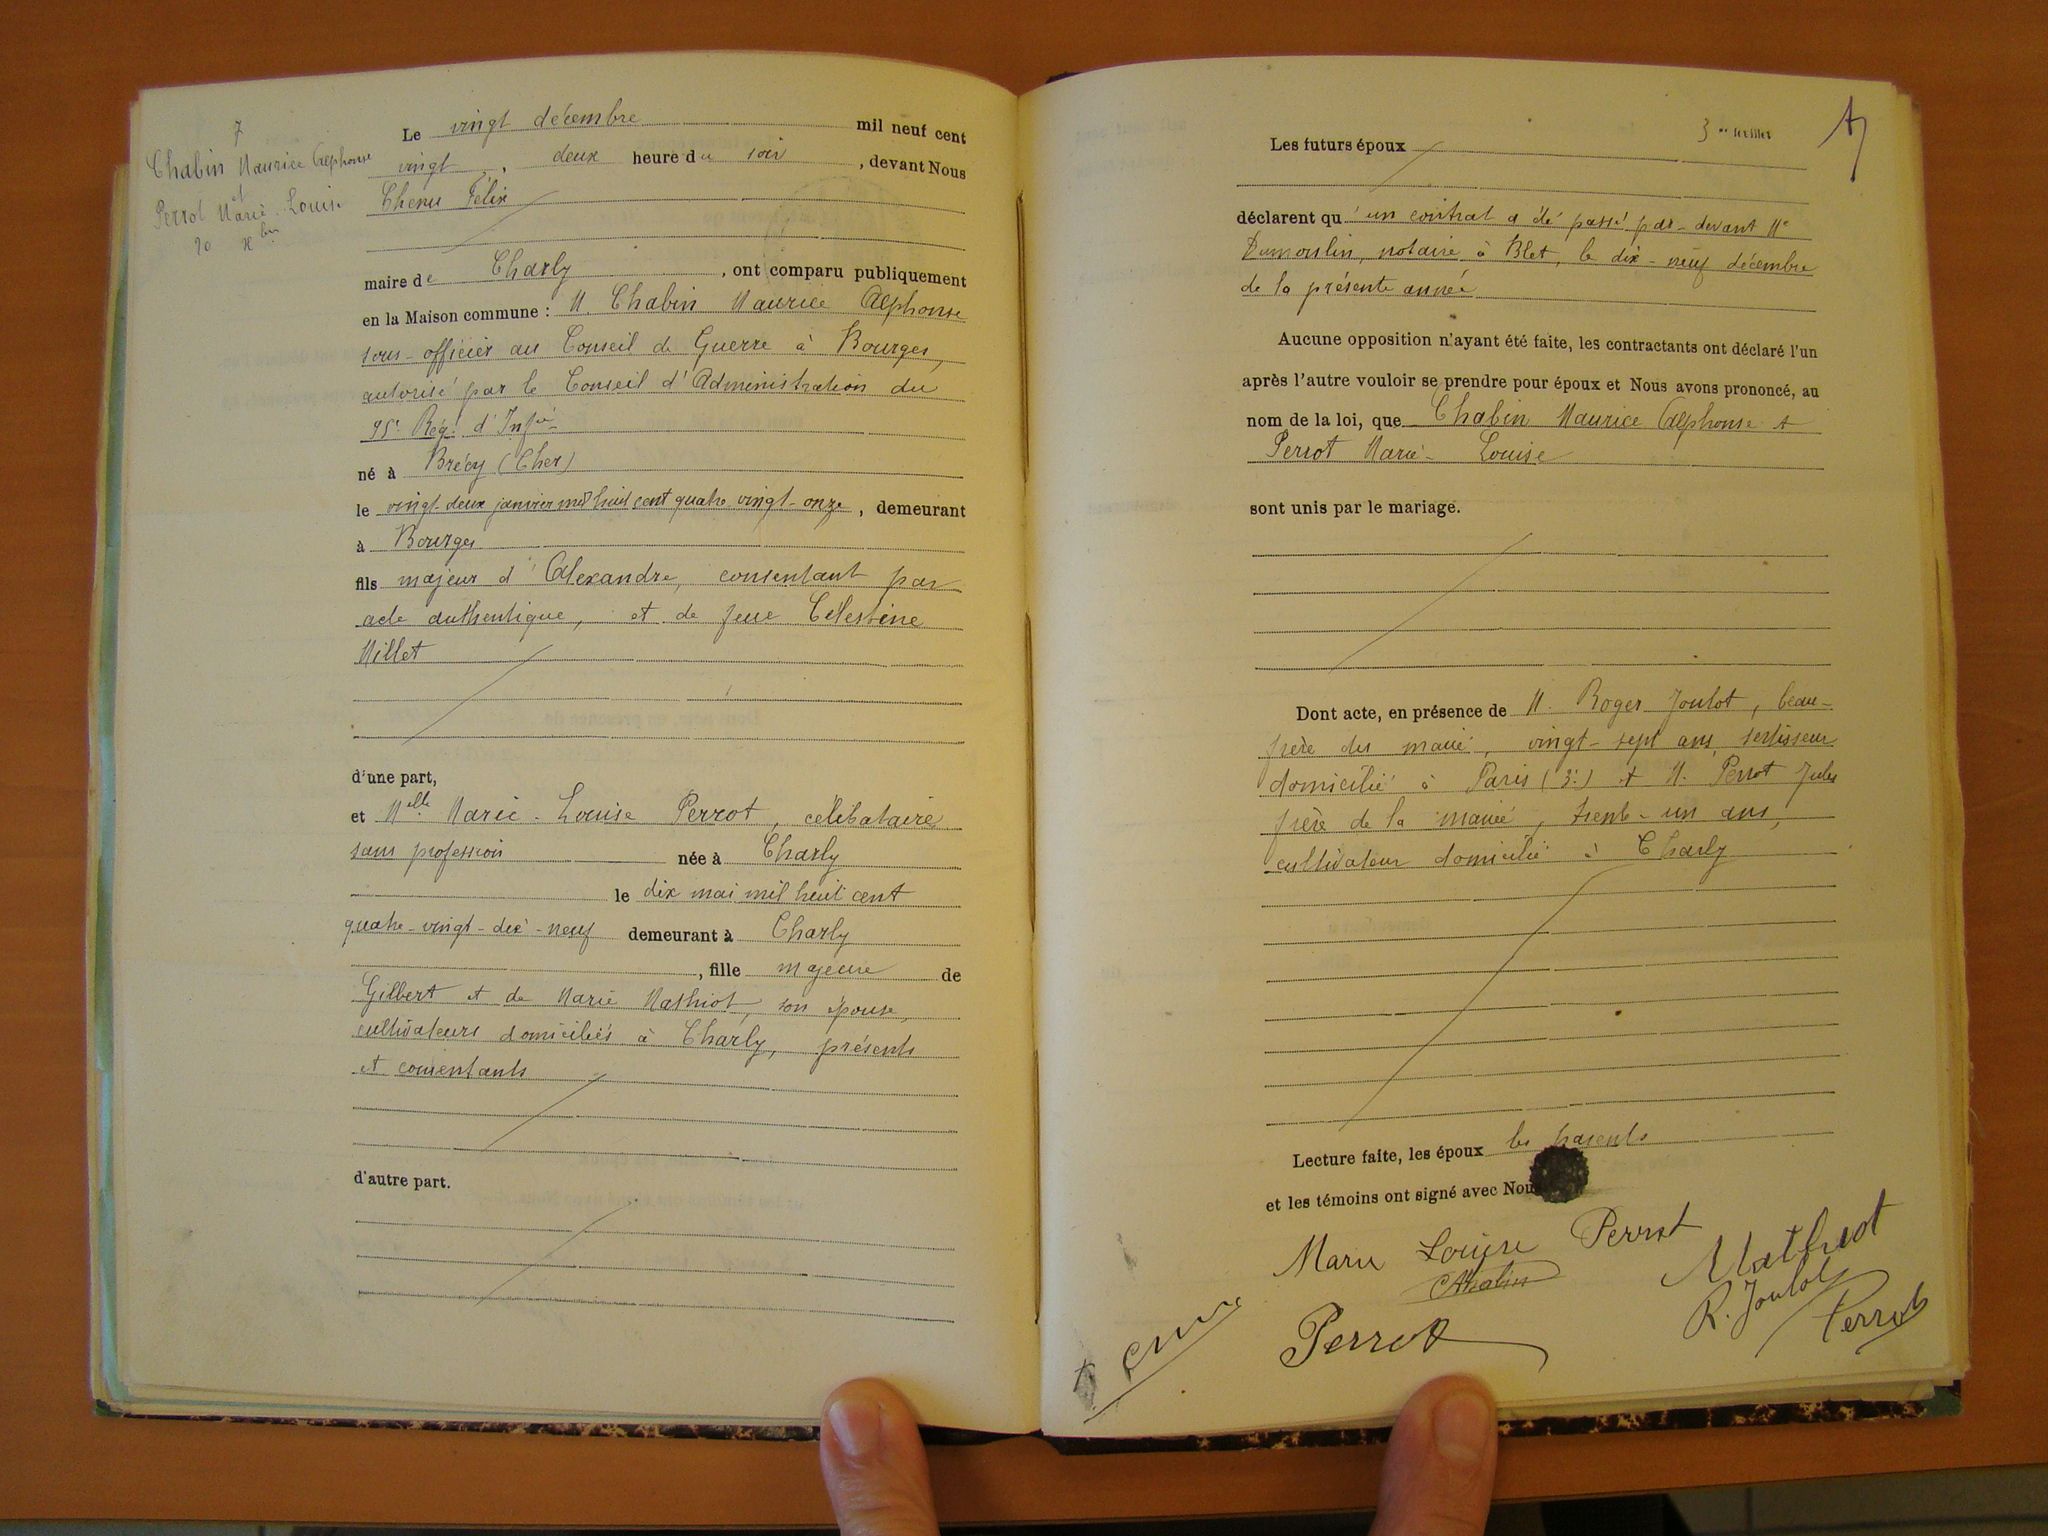 7
Chabin Maurice Alphonse
et
Perrot Marie-Louise
20 Xbre
Le vingt décembre mil neuf cent
vingt, deux heure du soir, devant Nous
Chenu Félix
maire de Charly, ont comparu publiquement
en la Maison commune : M. Chabin Maurice Alphonse
sous-officier au Conseil de Guerre à Bourges,
autorisé par le Conseil d'Administration du
95e Régt d'Infie
né à Brécy (Cher)
le vingt-deux janvier mil huit cent quatre vingt-onze, demeurant
à Bourges
fils majeur d'Alexandre, consentant par
acte authentique, et de feue Célestine
Millet
d'une part,
et Melle Marie-Louise Perrot, célibataire
sans profession née à Charly
le dix mai mil huit cent
quatre-vingt-dix-neuf demeurant à Charly
, fille majeure de
Gilbert et de Marie Mathiot, son épouse,
cultivateurs domiciliés à Charly, présents
et consentants
d'autre part.
3me feuillet
Les futurs époux
déclarent qu'un contrat a été passé par-devant Me
Dumoulin, notaire à Blet, le dix-neuf décembre
de la présente année
Aucune opposition n'ayant été faite, les contractants ont déclaré l'un
après l'autre vouloir se prendre pour époux et Nous avons prononcé, au
nom de la loi, que Chabin Maurice Alphonse et
Perrot Marie-Louise
sont unis par le mariage.
Dont acte, en présence de M. Roger Joulot, beau-
frère du marié, vingt-sept ans, sertisseur
domicilié à Paris (3e) et M. Perrot Jules
frère de la mariée, trente-un ans,
cultivateur domicilié à Charly
Lecture faite, les époux les parents
et les témoins ont signé avec Nous
Marie Louise Perrot
Mathiot
Chabin
R. Joulot
Perrot
Perrot